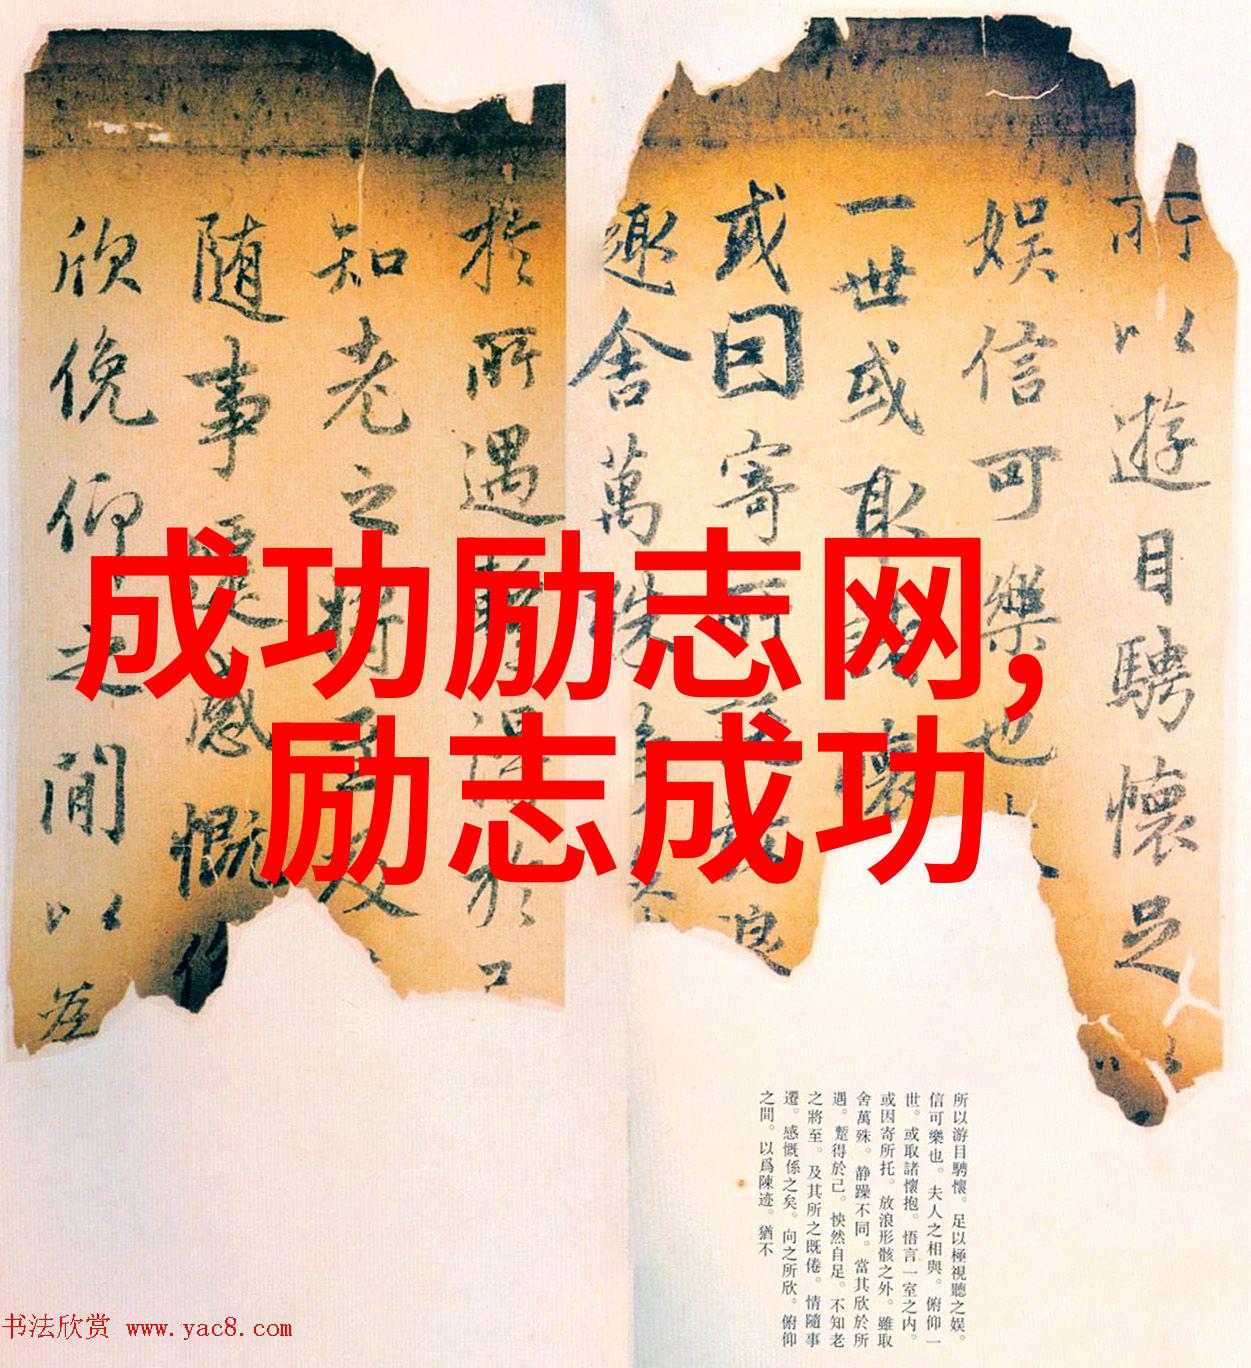 所以遊目騁懷足以
娱信可樂也
一世或取諸懷
或因寄所託放浪
趣舍萬殊静
於所遇暫得於己
知老之將至及
随事遷感慨係
欣俛仰之閒以為
成功励志网,
励志成功
所以游目騁懷。足以極視聽之娱。
信可樂也。夫人之相與。俯仰一
世。或取諸懷抱。悟言一室之内。
或因寄所托。放浪形骸之外。雖取
舍萬殊。静躁不同。當其欣於所
遇。蹔得於己。怏然自足。不知老
之將至。及其所之既倦。情隨事
遷。感慨係之矣。向之所欣。俯仰
之間。以爲陳迹。猶不
书法欣赏 www.yac8.com